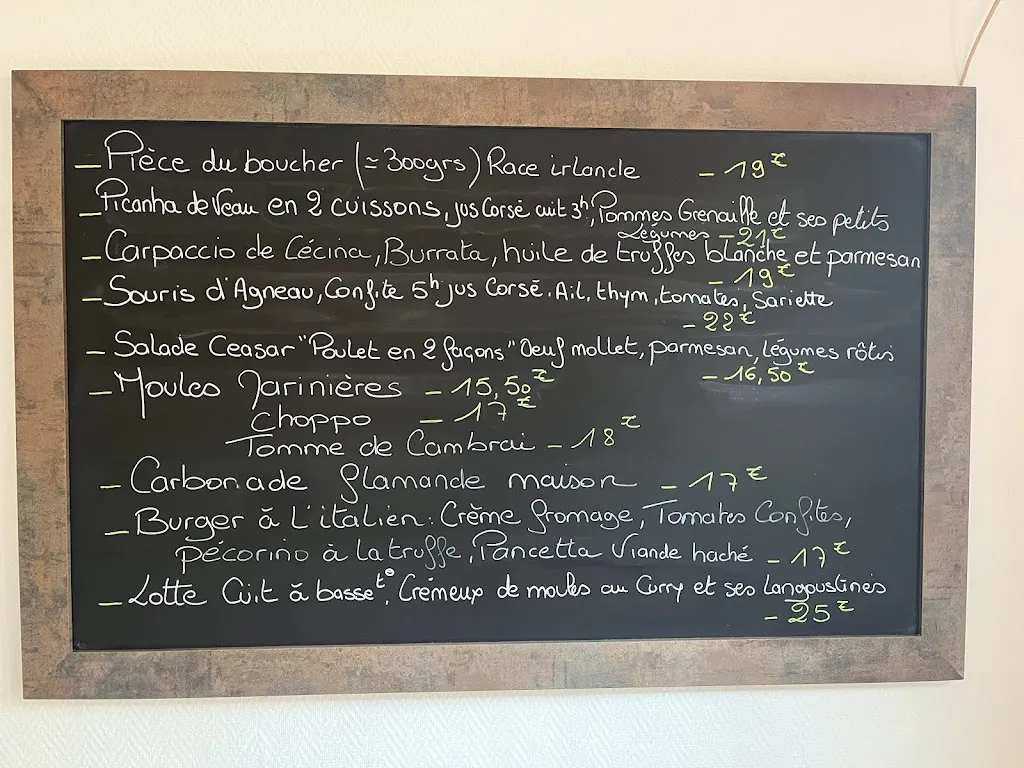 - Pièce du boucher (≃ 300grs) Race irlande - 19€
- Picanha de Veau en 2 cuissons, jus Corsé cuit 3h, Pommes Grenaille et ses petits
Légumes - 21€
- Carpaccio de Cécina, Burrata, huile de truffes blanche et parmesan
- 19€
- Souris d'Agneau, Confite 5h jus Corsé. Ail, thym, tomates, Sariette
- 22€
- Salade Ceasar "Poulet en 2 façons" Oeuf mollet, parmesan, légumes rôtis
- 16,50€
- Moules Marinières - 15,50€
Choppo - 17€
Tomme de Cambrai - 18€
- Carbonade flamande maison - 17€
- Burger à L'italien : Crème fromage, Tomates Confites,
pécorino à la truffe, Pancetta Viande haché - 17€
- Lotte Cuit à basse t°. Crémeux de moules au Curry et ses Langoustines
- 25€